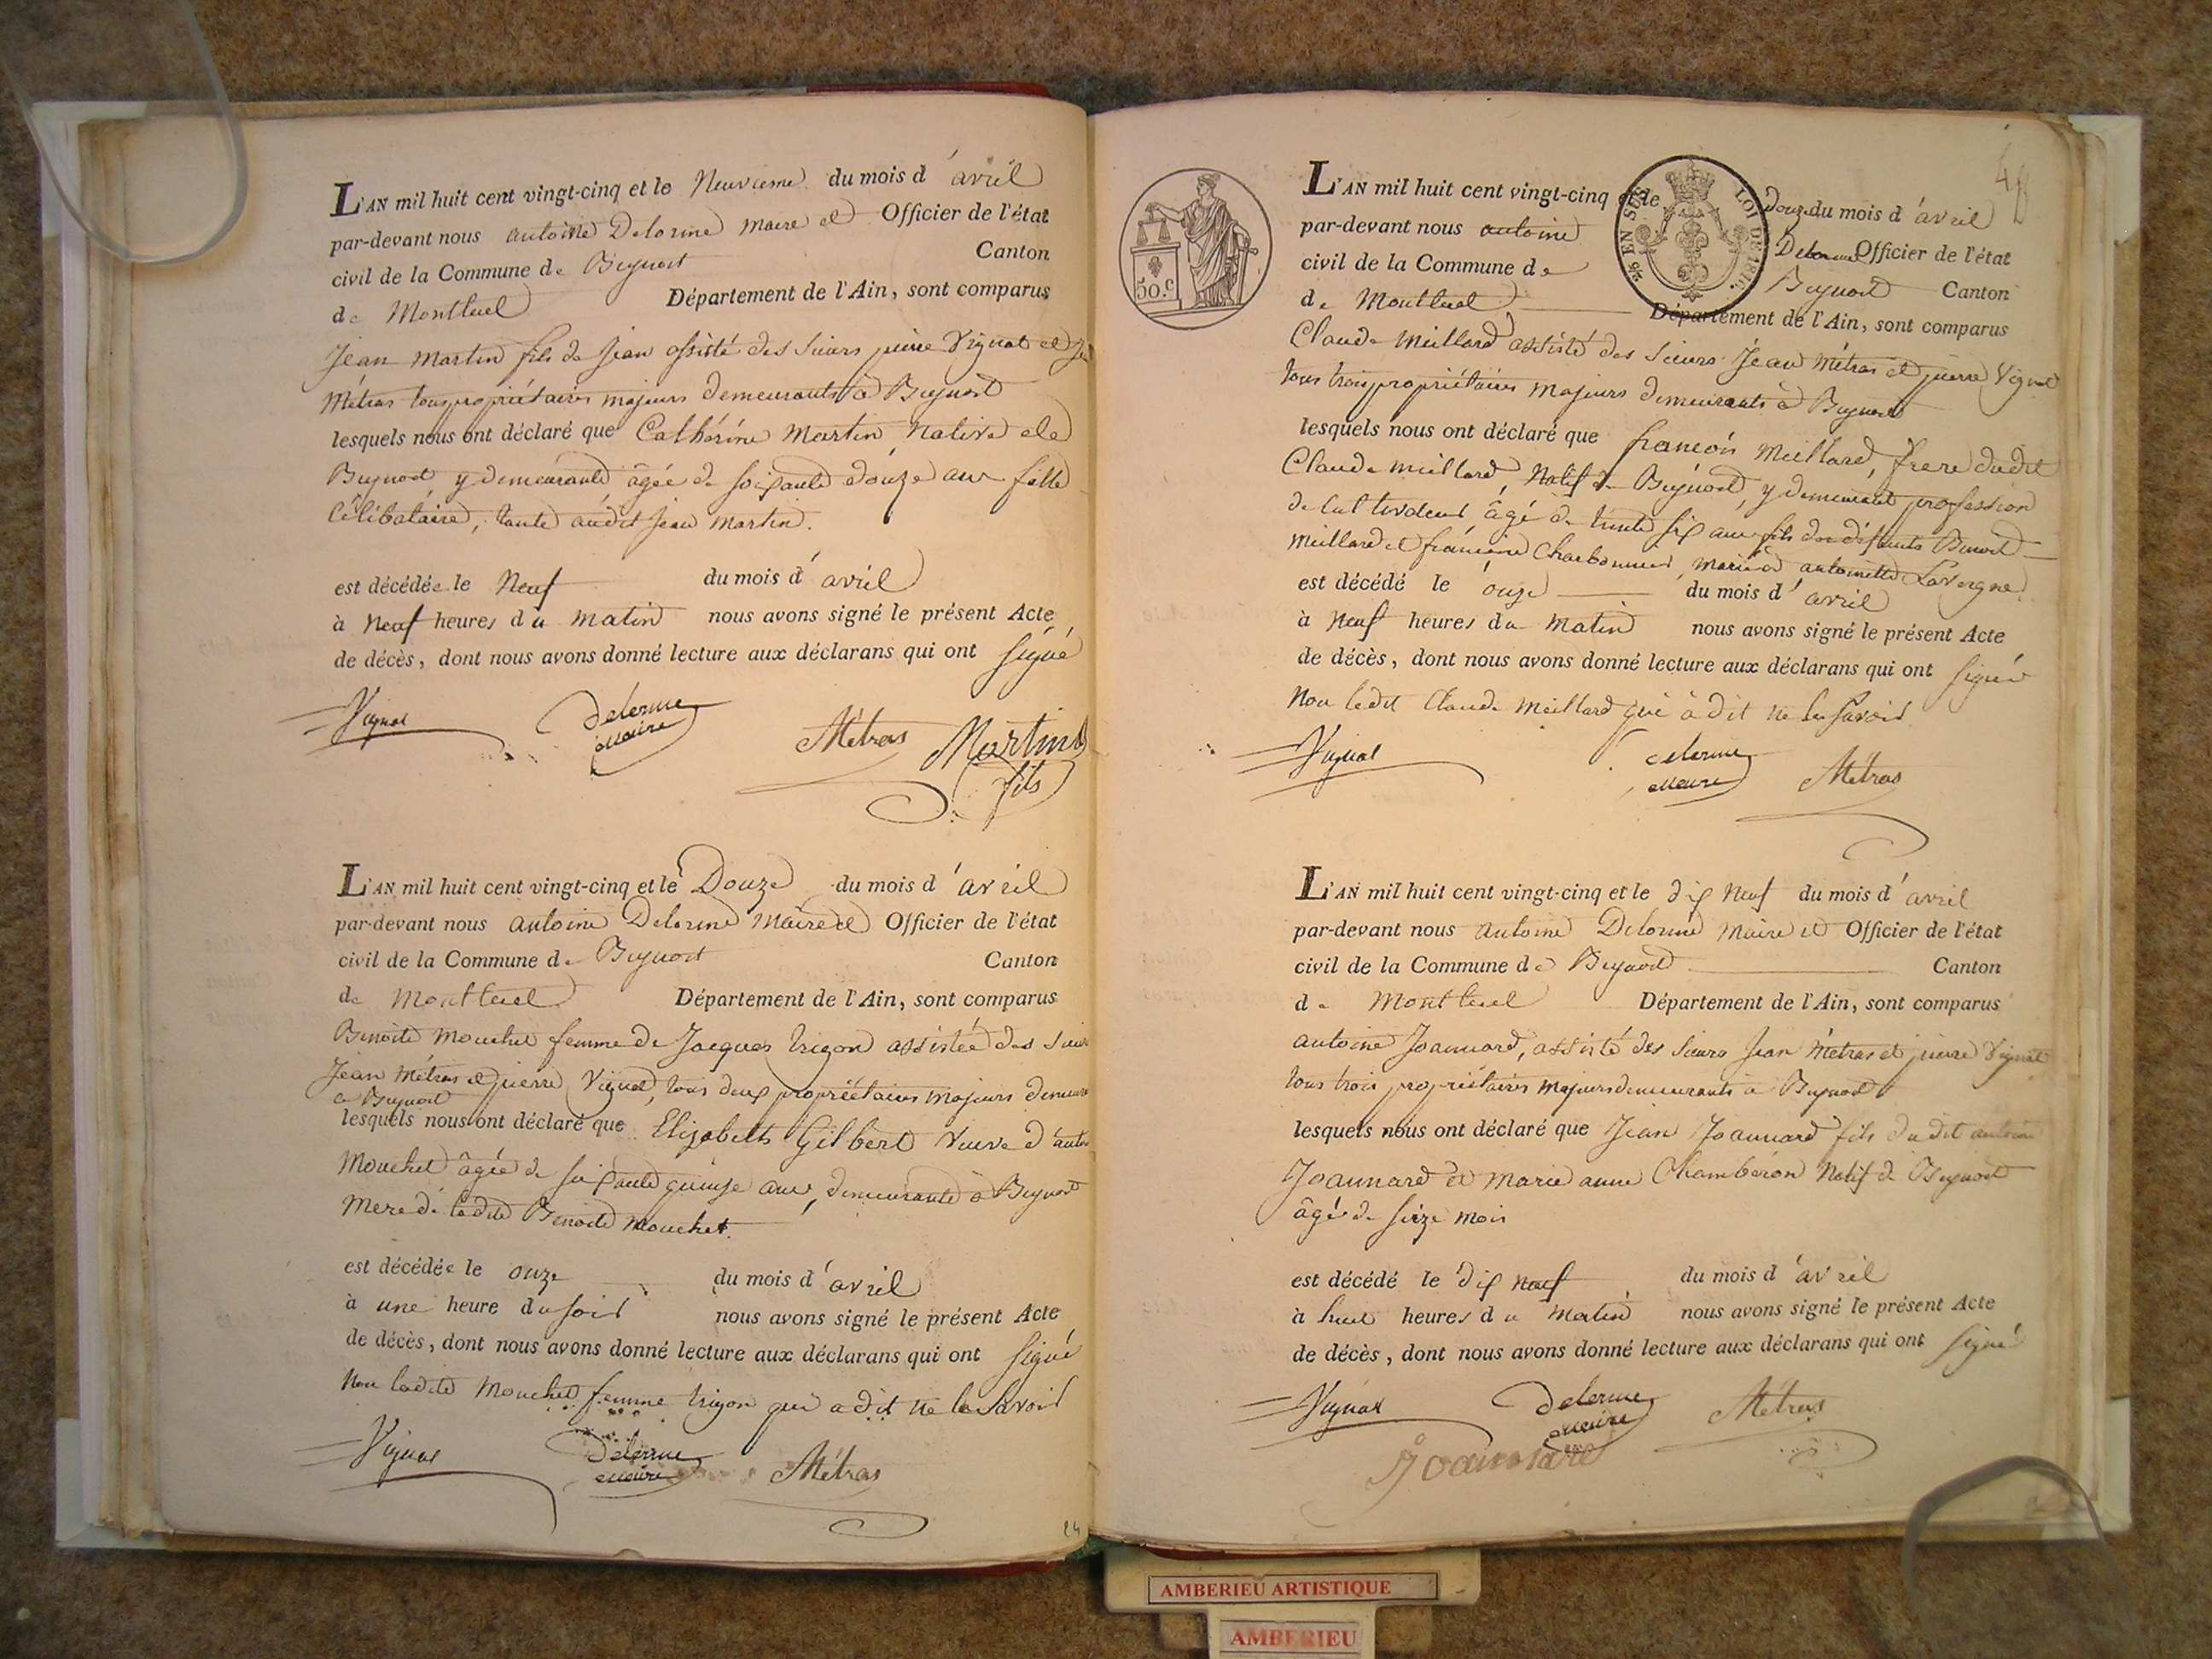 L'AN mil huit cent vingt-cinq et le Neuvieme du mois d'avril
par-devant nous antoine Delorme maire et Officier de l'état
civil de la Commune de Beynost Canton
de Montluel Département de l'Ain, sont comparus
Jean Martin fils de Jean assisté des sieurs pierre Vignat et
Métras tous propriétaires majeurs demeurants à Beynost
lesquels nous ont déclaré que Cathérine Martin Native de
Beynost y demeurante âgée de soixante douze ans fille
Célibataire, tante audit Jean Martin.
est décédée le Neuf du mois d'avril
à Neuf heures du matin nous avons signé le présent Acte
de décès, dont nous avons donné lecture aux déclarans qui ont signé
Vignat Delorme maire Métras Martin fils
L'AN mil huit cent vingt-cinq et le Douze du mois d'avril
par-devant nous antoine Delorme Maire et Officier de l'état
civil de la Commune de Beynost Canton
de Montluel Département de l'Ain, sont comparus
Benoite Mouchet femme de Jacques trigon assistée des sieurs
Jean Métras et pierre Vignat, tous deux propriétaires majeurs
a Beynost
lesquels nous ont déclaré que Elizabeth Gilbert Veuve d'
Mouchet âgée de soixante quinze ans, demeurante à Beynost
Mere de ladite Benoite Mouchet.
est décédée le onze du mois d'avril
à une heure du soir nous avons signé le présent Acte
de décès, dont nous avons donné lecture aux déclarans qui ont signé
Non ladite Mouchet femme trigon qui a dit ne le savoir
Vignat Delorme maire Métras
24
50.C
EN SUS LOI DE 1816.
L'AN mil huit cent vingt-cinq et le Douze du mois d'avril
par-devant nous antoine Delorme Officier de l'état
civil de la Commune de Beynost Canton
de Montluel Département de l'Ain, sont comparus
Claude Meillard assisté des sieurs Jean Métras et pierre Vignat
tous trois propriétaires majeurs demeurants à Beynost
lesquels nous ont déclaré que françois Meillard, frere dudit
Claude Meillard, Natif de Beynost, y demeurant profession
de Cultivateur âgé de trente six ans fils de défunts Benoit
Meillard et francoise Charbonnier, marié à antoinette Lavergne
est décédé le onze du mois d'avril
à Neuf heures du Matin nous avons signé le présent Acte
de décès, dont nous avons donné lecture aux déclarans qui ont signé
Non ledit Claude Meillard qui à dit ne le savoir
Vignat Delorme maire Métras
L'AN mil huit cent vingt-cinq et le dix Neuf du mois d'avril
par-devant nous antoine Delorme Maire et Officier de l'état
civil de la Commune de Beynost Canton
de Montluel Département de l'Ain, sont comparus
antoine Joannard, assisté des sieurs Jean Métras et pierre Vignat
tous trois propriétaires majeurs demeurants a Beynost
lesquels nous ont déclaré que Jean Joannard fils dudit antoine
Joannard et Marie anne Chambéron Natif de Beynost
âgé de seize mois
est décédé le dix neuf du mois d'avril
à huit heures du Matin nous avons signé le présent Acte
de décès, dont nous avons donné lecture aux déclarans qui ont signé
Vignat Delorme maire Métras
Joannard
AMBERIEU ARTISTIQUE
AMBERIEU